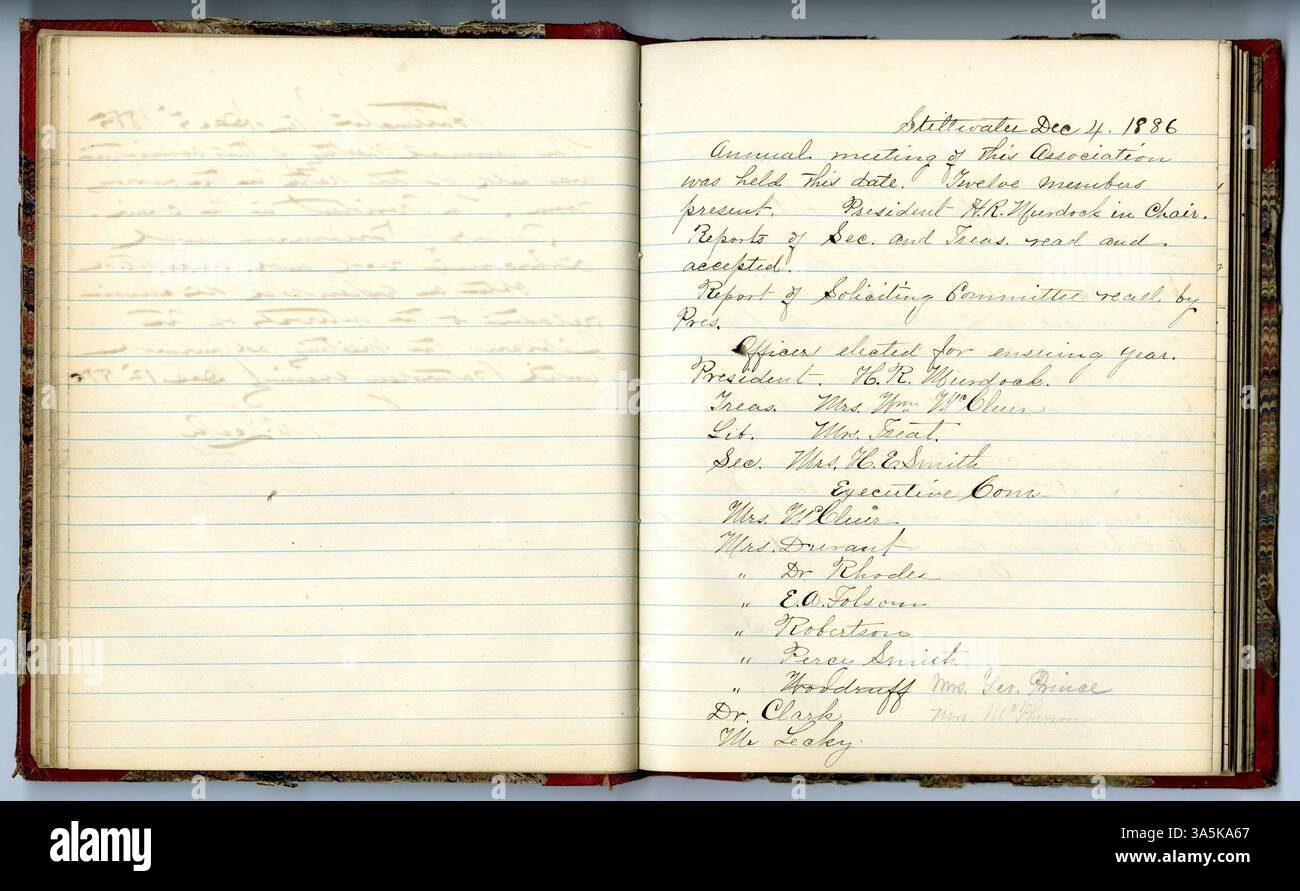 Stillwater Dec 4. 1886
Annual meeting of this Association
was held this date. Twelve members
present. President H.R. Murdock in Chair.
Reports of Sec. and Treas. read and
accepted.
Report of Soliciting Committee read by
Pres.
Officers elected for ensuing year.
President. H. R. Murdock.
Treas. Mrs. Wm McCluer
Lib. Mrs. Treat.
Sec. Mrs. H. E. Smith
Executive Com
Mrs. McCluer
Mrs. Durant
" Dr Rhodes
" E. A. Folsom
" Robertson
" Percy Smith
" Woodruff Mrs. Geo. Prince
Dr. Clark Mrs. McPherson
Mr Lecky.
alamy
alamy
Image ID: 3A5KA67
www.alamy.com